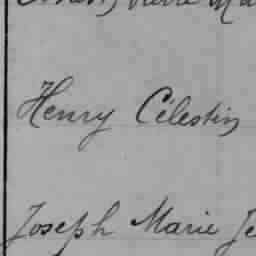 Henry Célestin
Joseph Marie Je